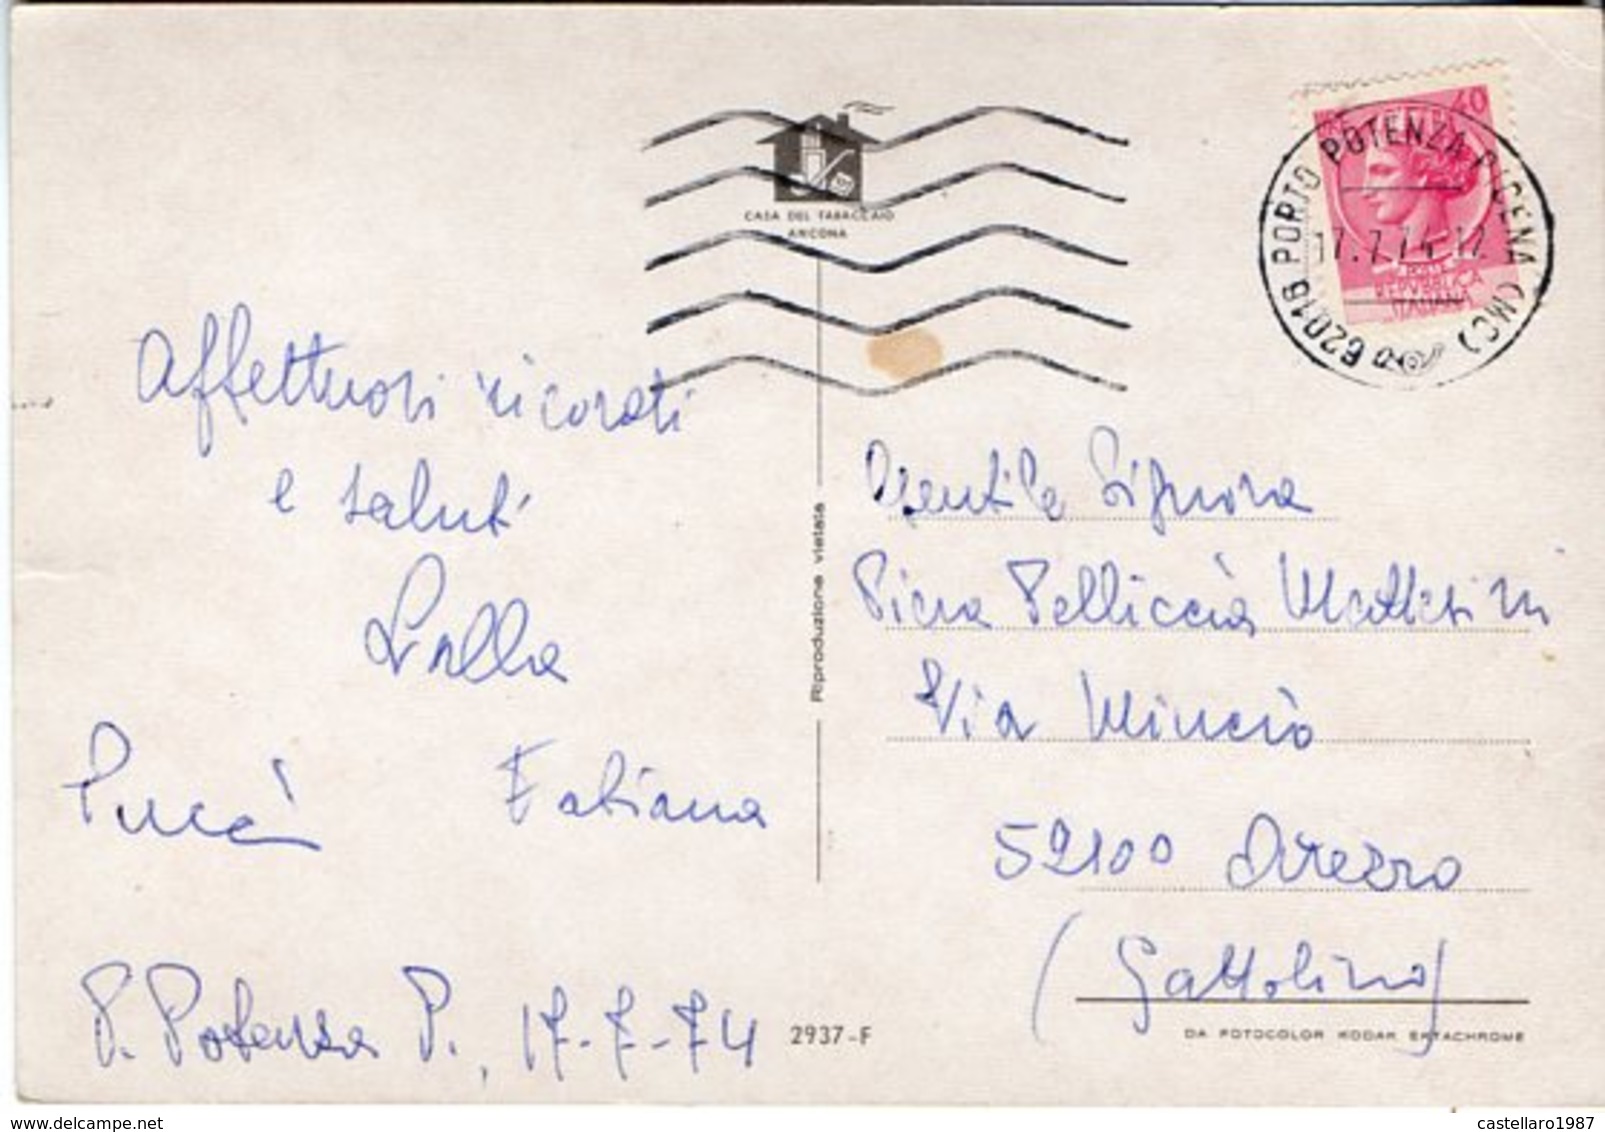 CASA DEL TABACCAIO
ANCONA
40
POSTE
REPVBBLICA
ITALIANA
62018 PORTO POTENZA PICENA (MC)
17.7.74.17
Affettuosi ricordi
e saluti
Lalla
Fabiana
P. Potenza P., 17-7-74
Riproduzione vietata
Gentile Signora
Piera Pelliccia Mattesini
Via Mincio
52100 Arezzo
(Gattolino)
2937-F
DA FOTOCOLOR KODAK EKTACHROME
castellaro1987